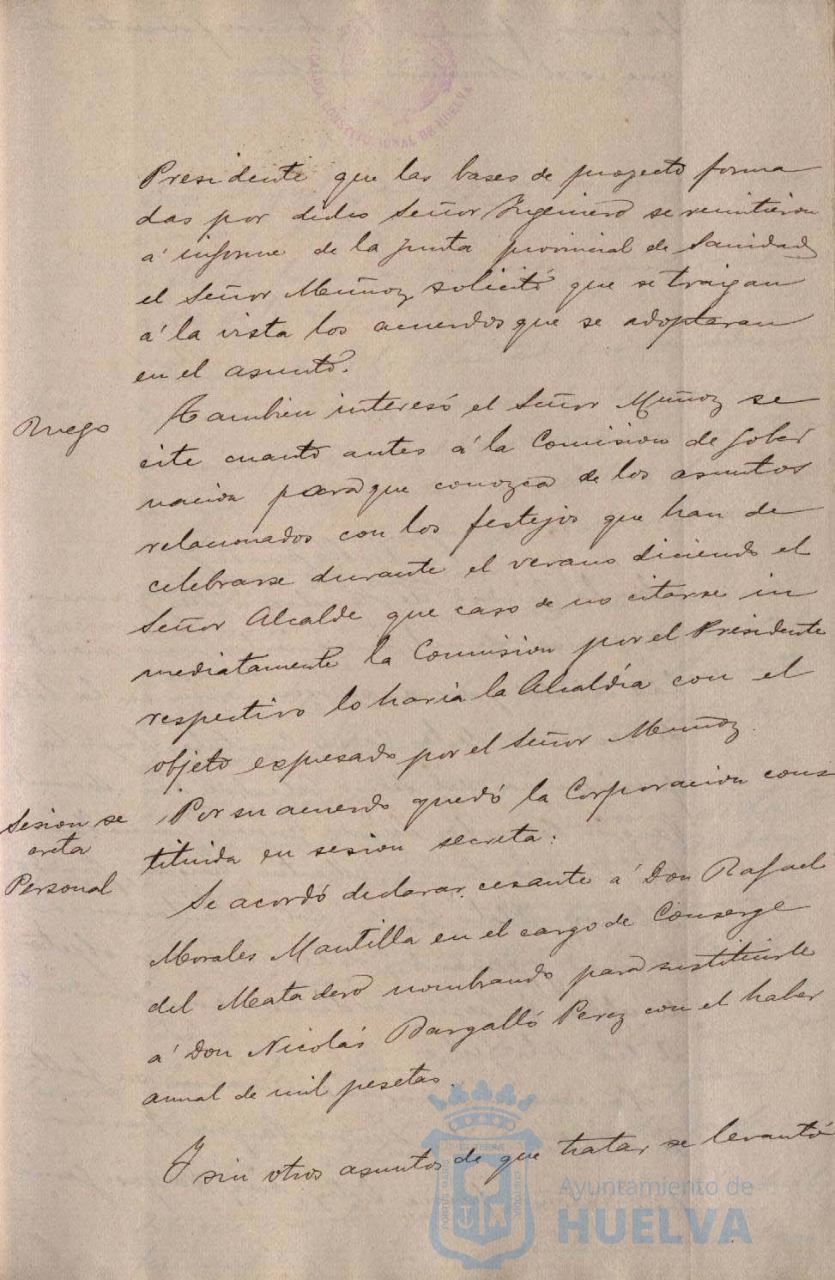 ALCALDIA CONSTITUCIONAL DE HUELVA
Presidente que las bases de proyecto forma
das por dicho Señor Ingeniero se remitieron
á informe de la Junta provincial de Sanidad
el Señor Muñoz solicitó que se traigan
á la vista los acuerdos que se adoptaran
en el asunto.
Ruego
Tambien interesó el Señor Muñoz se
cite cuanto antes á la Comision de Gober
nacion para que conozca de los asuntos
relacionados con los festejos que han de
celebrarse durante el verano diciendo el
Señor Alcalde que caso de no citarse in
mediatamente la Comision por el Presidente
respectivo lo haria la Alcaldía con el
objeto expresado por el Señor Muñoz.
Sesion se
creta
Por su acuerdo quedó la Corporacion cons
tituida en sesion secreta:
Personal
Se acordó declarar cesante á Don Rafael
Morales Mantilla en el cargo de Conserge
del Matadero nombrando para sustituirle
á Don Nicolás Bargalló Perez con el haber
anual de mil pesetas.
Y sin otros asuntos de que tratar se levantó
Ayuntamiento de
HUELVA